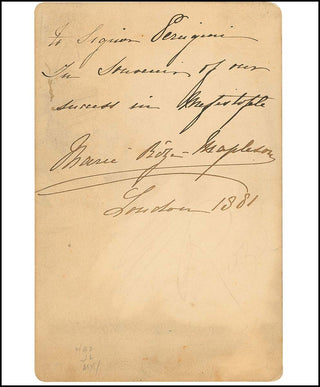 To Signor Perugini
In Souvenir of our
success in Mefistofele
Marie Rôze Mapleson
London 1881